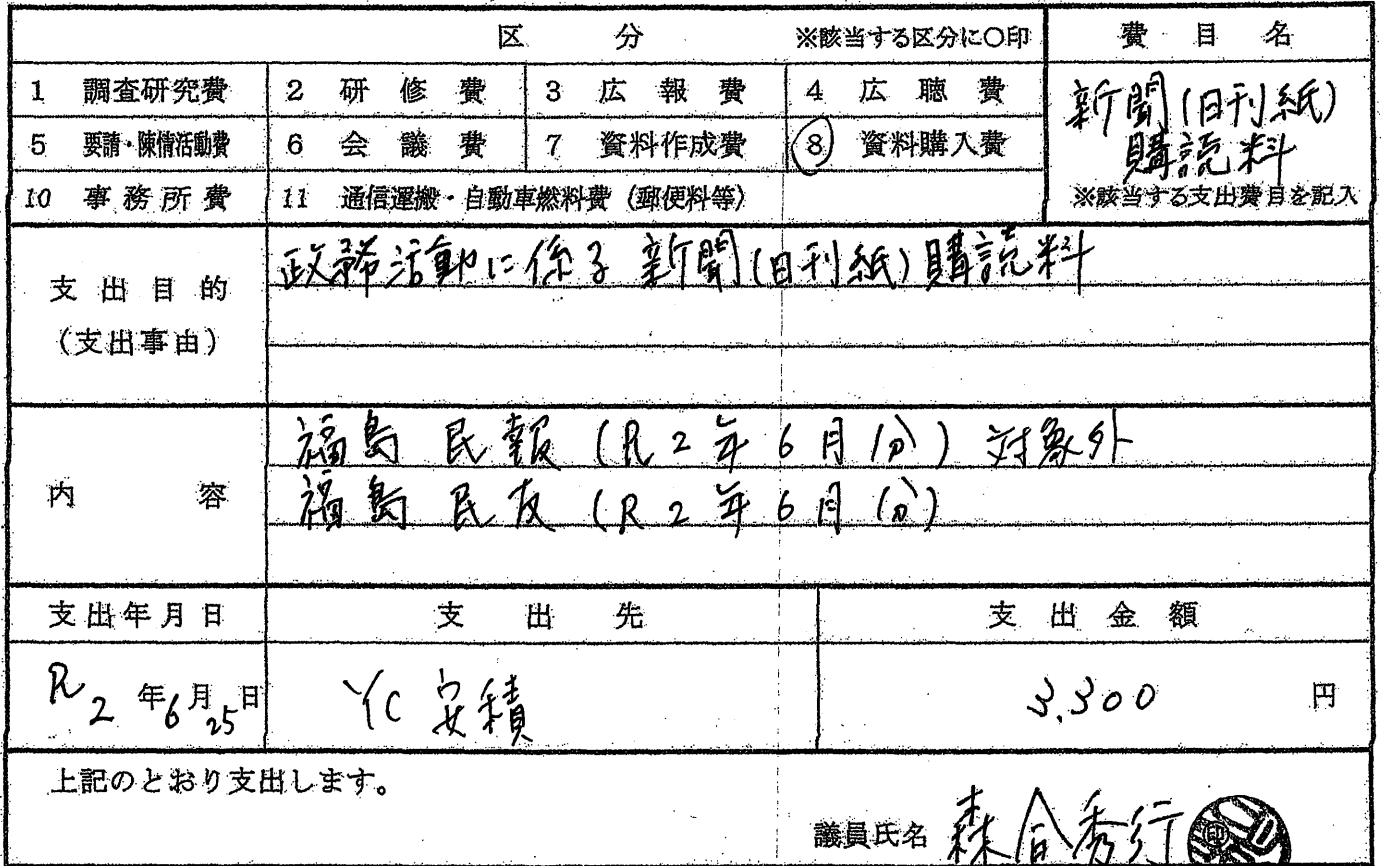 区 分 ※該当する区分に○印 費目名
1 調査研究費 2 研修費 3 広報費 4 広聴費
新聞(日刊紙)
5 要請・陳情活動費 6 会議費 7 資料作成費 8 資料購入費
購読料
10 事務所費 11 通信運搬・自動車燃料費（郵便料等） ※該当する支出費目を記入
政務活動に係る新聞(日刊紙)購読料
支出目的
（支出事由）
福島民報(R2年6月分)対象外
内容
福島民友(R2年6月分)
支出年月日 支出先 支出金額
R2年6月25日 YC安積 3,300円
上記のとおり支出します。
議員氏名 森合秀行 印